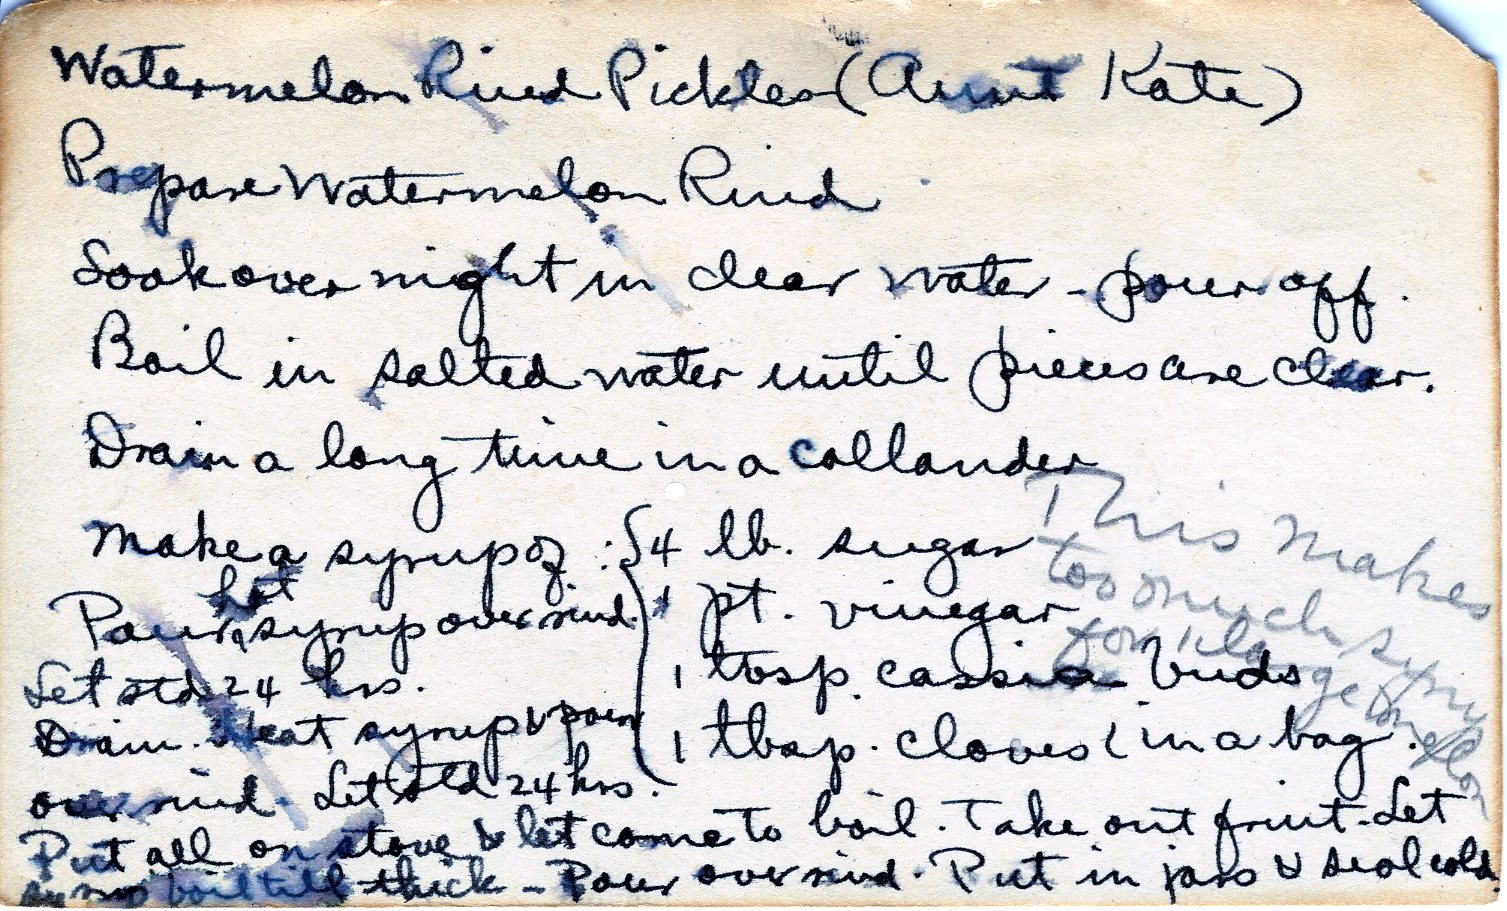 Watermelon Rind Pickles (Aunt Kate)
Prepare Watermelon Rind
Soak over night in clear water - pour off.
Boil in salted water until pieces are clear.
Drain a long time in a collander
Make a syrup of : { 4 lb. sugar
1 pt. vinegar
1 tbsp. cassia buds
1 tbsp. cloves ( in a bag.
Pour hot syrup over rind.
Let std 24 hrs.
Drain. Heat syrup & pour
over rind. Let std 24 hrs.
Put all on stove & let come to boil. Take out fruit. Let
syrup boil till thick - Pour over rind. Put in jars & seal cold.
This makes
too much syrup
for 1 large melon